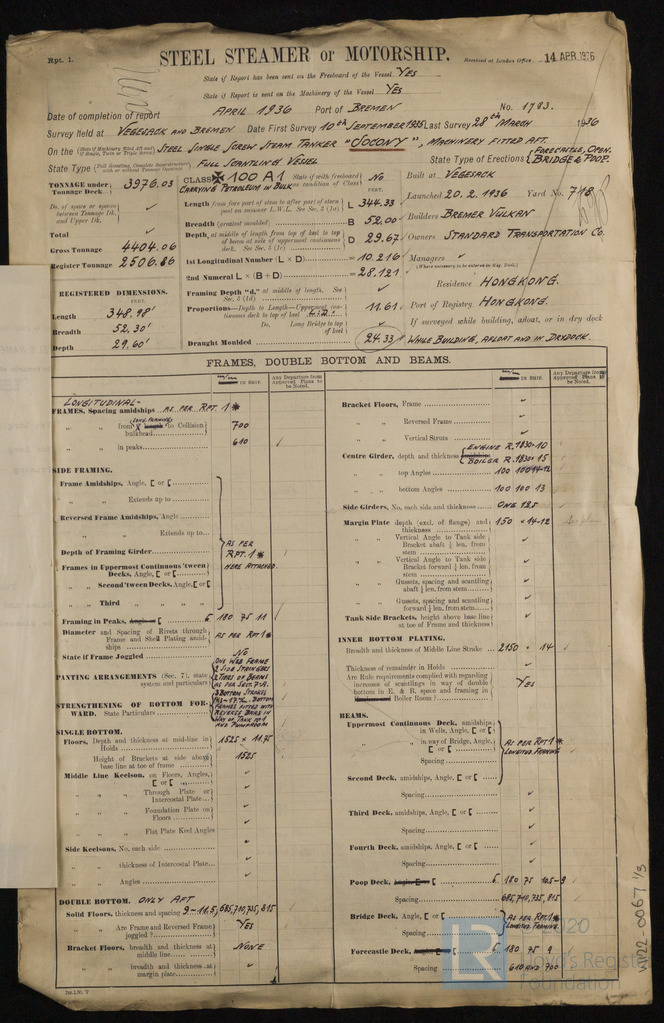 Rpt. 1.
STEEL STEAMER or MOTORSHIP.
Received at London Office 14 APR 1936
State if Report has been sent on the Freeboard of the Vessel YES
State if Report is sent on the Machinery of the Vessel YES
Date of completion of report APRIL 1936 Port of BREMEN No. 1783.
Survey held at VEGESACK AND BREMEN Date First Survey 10th SEPTEMBER 1935 Last Survey 28th MARCH 1936
On the STEEL SINGLE SCREW STEAM TANKER "SOCONY", MACHINERY FITTED AFT.
State Type FULL SCANTLING VESSEL State Type of Erections FORECASTLE, OPEN BRIDGE & POOP.
TONNAGE under Tonnage Deck 3976.03
Do. of space or spaces between Tonnage Dk. and Upper Dk. ✓
Total ✓
Gross Tonnage 4404.06
Register Tonnage 2506.86
REGISTERED DIMENSIONS.
FEET.
Length 348.98'
Breadth 52.30'
Depth 29.60'
CLASS ✠ 100 A1 State if with freeboard as condition of Class NO
CARRYING PETROLEUM IN BULK
FEET.
Length from fore part of stem to after part of stern post on summer L.W.L. See Sec. 3 (1a) L 344.33
Breadth (greatest moulded) B 52.00
Depth, at middle of length from top of keel to top of beam at side of uppermost continuous deck. See Sec. 3 (1c) D 29.67
1st Longitudinal Number (L × D) = 10.216
2nd Numeral L × (B + D) = 28.121
Framing Depth "d," at middle of length. See Sec. 3 (1d) ✓
Proportions—Depth to Length—Uppermost continuous deck to top of keel 11.61
Do. Long Bridge to top of keel ✓
Draught Moulded 24.33
Built at VEGESACK
Launched 20.2.1936 Yard No. 718
Builders BREMER VULKAN
Owners STANDARD TRANSPORTATION Co.
Managers ✓
(Where necessary to be entered in Reg. Book.)
Residence HONGKONG.
Port of Registry HONGKONG.
If surveyed while building, afloat, or in dry dock
WHILE BUILDING, AFLOAT AND IN DRYDOCK.
FRAMES, DOUBLE BOTTOM AND BEAMS.
IN SHIP. Any Departure from Approved Plans to be Noted.
LONGITUDINAL-
FRAMES, Spacing amidships AS PER RPT. 1*
" " from length to Collision bulkhead 700
" " in peaks 610
SIDE FRAMING.
Frame Amidships, Angle, [ or [
" " Extends up to
Reversed Frame Amidships, Angle
" " Extends up to
Depth of Framing Girder AS PER RPT. 1* HERE ATTACHED.
Frames in Uppermost Continuous 'tween Decks, Angle, [ or [
" " Second 'tween Decks, Angle, [ or [
" " Third " "
Framing in Peaks, [ 180 75 11
Diameter and Spacing of Rivets through Frame and Shell Plating amidships AS PER RPT 1*
State if Frame Joggled NO
PANTING ARRANGEMENTS (Sec. 7), state system and particulars ONE WEB FRAME 2 SIDE STRINGERS 2 TIERS OF BEAMS AS PER SECT. 7.A.
STRENGTHENING OF BOTTOM FORWARD. State Particulars 3 BOTTOM STRAKES BOTTOM FRAMES FITTED WITH REVERSE BARS IN WAY OF TANK No 1 AND PUMPROOM
SINGLE BOTTOM.
Floors, Depth and thickness at mid-line in Holds 1525 × 11.75
Height of Brackets at side above base line at toe of frame 1525
Middle Line Keelson, on Floors, Angles, [ or [ ✓
" " Through Plate or Intercostal Plate ✓
" " Foundation Plate on Floors ✓
" " Flat Plate Keel Angles ✓
Side Keelsons, No. each side ✓
" " thickness of Intercostal Plate ✓
" " Angles ✓
DOUBLE BOTTOM. ONLY AFT
Solid Floors, thickness and spacing 9-11.5; 685,710,735,815
" Are Frame and Reversed Frame joggled? YES
Bracket Floors, breadth and thickness at middle line NONE
" " breadth and thickness at margin plate ✓
IN SHIP. Any Departure from Approved Plans to be Noted.
Bracket Floors, Frame ✓
" " Reversed Frame ✓
" " Vertical Struts ✓
Centre Girder, depth and thickness ENGINE R. 1830×10 BOILER R. 1830×15
" " top Angles 100 100 14-12
" " bottom Angles 100 100 13
Side Girders, No. each side and thickness ONE 12.5
Margin Plate depth (excl. of flange) and thickness 150 × 14-12
" " Vertical Angle to Tank side Bracket abaft ¼ len. from stem ✓
" " Vertical Angle to Tank side Bracket forward ¼ len. from stem ✓
" " Gussets, spacing and scantling abaft ¼ len. from stem ✓
" " Gussets, spacing and scantling forward ¼ len. from stem ✓
Tank Side Brackets, height above base line at toe of Frame and thickness ✓
INNER BOTTOM PLATING.
Breadth and thickness of Middle Line Strake 2150 × 14
Thickness of remainder in Holds ✓
Are Rule requirements complied with regarding increase of scantlings in way of double bottom in E. & B. space and framing in Boiler Room? YES
BEAMS.
Uppermost Continuous Deck, amidships in Wells, Angle, [ or [
" " in way of Bridge, Angle, [ or [ AS PER RPT. 1* LONGITUD. FRAMING
Spacing
Second Deck, amidships, Angle, [ or [ ✓
Spacing ✓
Third Deck, amidships, Angle, [ or [ ✓
Spacing ✓
Fourth Deck, amidships, Angle, [ or [ ✓
Spacing ✓
Poop Deck, [ 180 75 10.5-9
Spacing 685,710,735,815
Bridge Deck, Angle, [ or [ AS PER RPT. 1* LONGITUD. FRAMING.
Spacing
Forecastle Deck, [ 180 75 9
Spacing 610 AND 700
W122-0067 1/3
LR
2020
Lloyd's Register Foundation